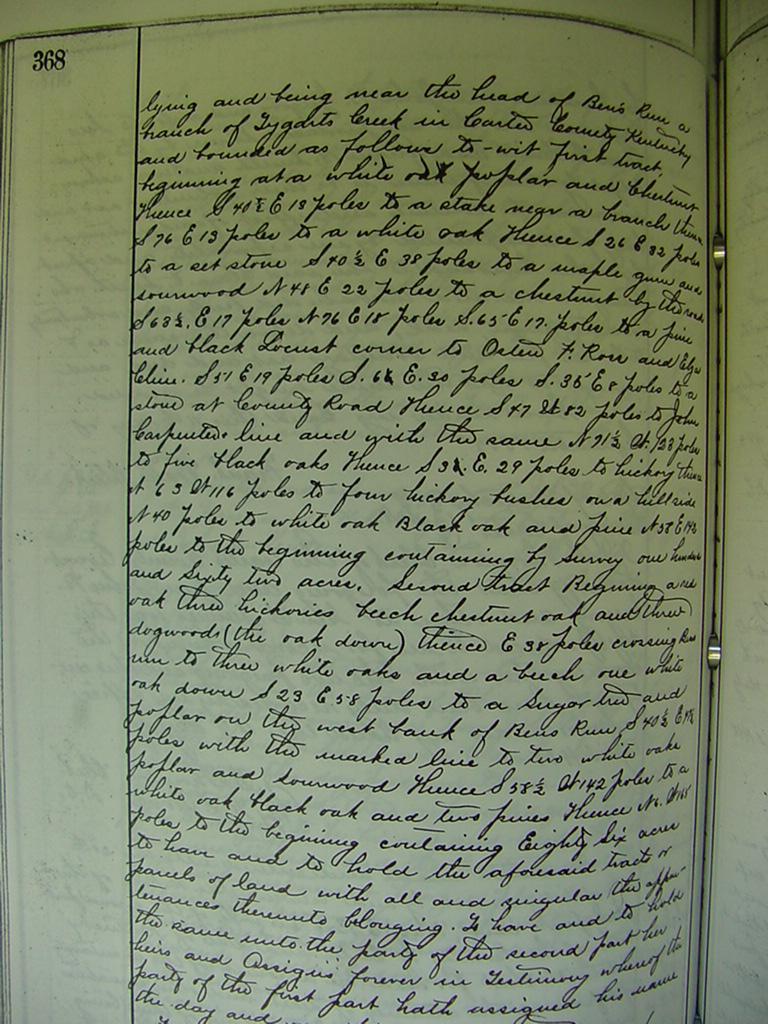 368
lying and being near the head of Ben's Run a
branch of Tygarts Creek in Carter County Kentucky
and bounded as follows to-wit first tract,
beginning at a white oak poplar and Chestnut
thence S 40½ E 18 poles to a stake near a branch thence
S 76 E 13 poles to a white oak thence S 26 E 32 poles
to a set stone S 40½ E 38 poles to a maple gum and
sourwood N 48 E 22 poles to a chestnut by the road
S 63½ E 17 poles N 76 E 18 poles S. 65 E 17. poles to a pine
and black Locust corner to F. Rose and
Cline. S 51 E 19 poles S. E. 30 poles S. 35 E 8 poles to a
stone at County Road thence S 47 W 82 poles to John
Carpenters line and with the same N 71½ W. 128 poles
to five black oaks thence S E. 29 poles to hickory thence
N 63 W 116 poles to four hickory bushes on a hillside
N 40 poles to white oak Black oak and pine N 58 E 142
poles to the beginning containing by survey one hundred
and Sixty two acres. Second tract Begining a red
oak three hickories beech chestnut oak and three
dogwoods (the oak down) thence E 38 poles crossing Bens
run to three white oaks and a beech one white
oak down S 23 E 58 poles to a Sugar tree and
poplar on the west bank of Bens Run S 40½ E
poles with the marked line to two white oaks
poplar and sourwood thence S 58½ W 142 poles to a
white oak black oak and two pines thence N. W
poles to the begining containing Eighty Six acres
to have and to hold the aforesaid tracts or
parcels of land with all and singular the appur-
tenances thereunto belonging. To have and to hold
the same unto the party of the second part her
heirs and Assigns forever in Testimony whereof the
party of the first part hath assigned his name
the day and